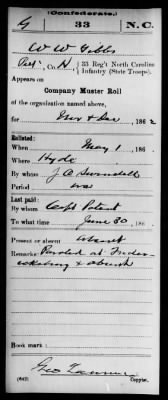 (Confederate.)
G | 33 | N. C.
W W Gibbs
Pvt, Co. H, 33 Reg't North Carolina Infantry (State Troops).
Appears on
Company Muster Roll
of the organization named above,
for Nov & Dec, 186 2
Enlisted:
When May 1, 186
Where Hyde
By whom J. A. Swindell
Period war
Last paid:
By whom Capt
To what time June 30, 186
Present or absent absent
Remarks: Paroled at
& absent
Book mark:
(642) Copyist.